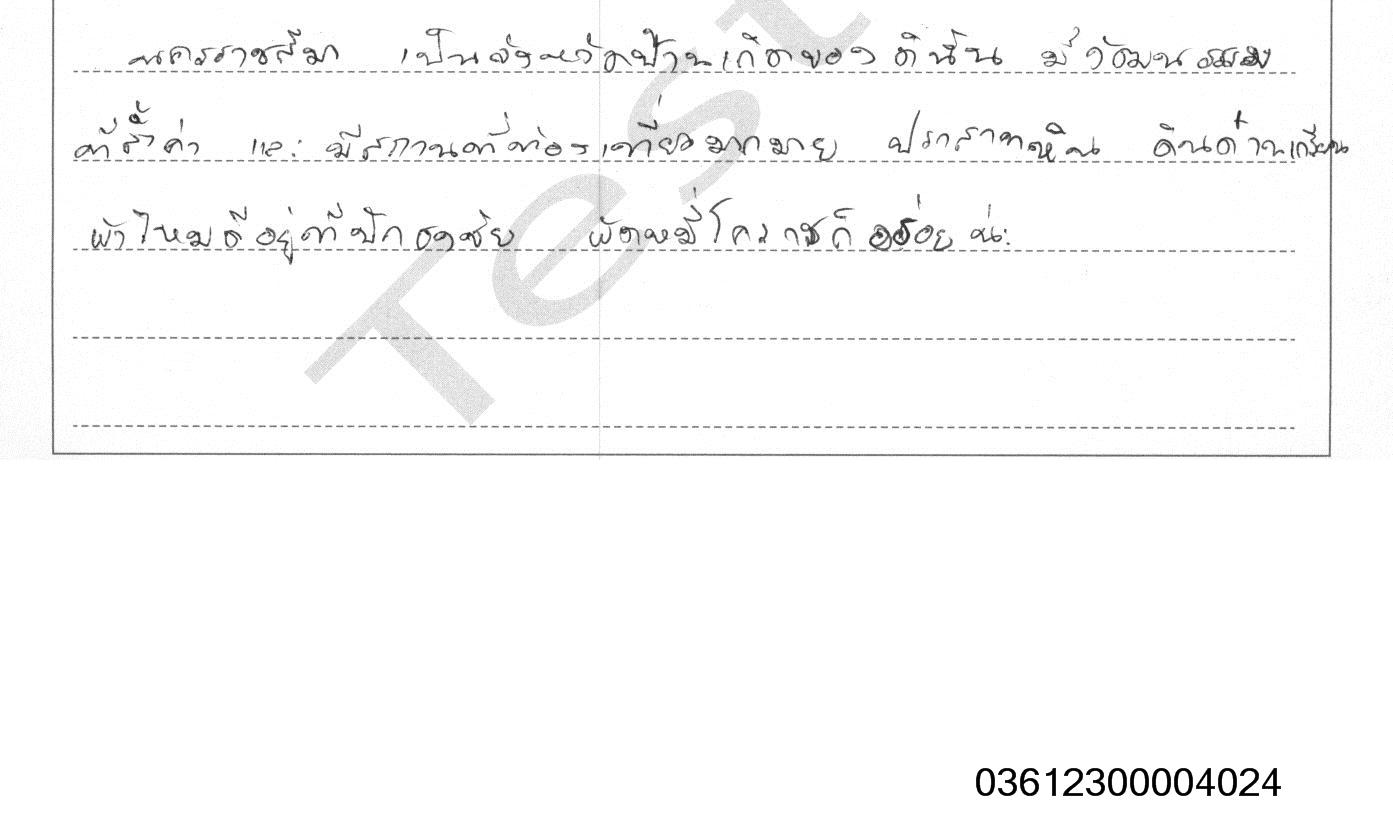 นครราชสีมา เป็นจังหวัดบ้านเกิดของดิฉัน มีวัฒนธรรม
ที่ล้ำค่า และ มีสถานที่ท่องเที่ยวมากมาย ปราสาทหิน ดินด่านเกวียน
ผ้าไหมดีอยู่ที่ปักธงชัย ผัดหมี่โคราชก็อร่อยน่ะ
Test
03612300004024